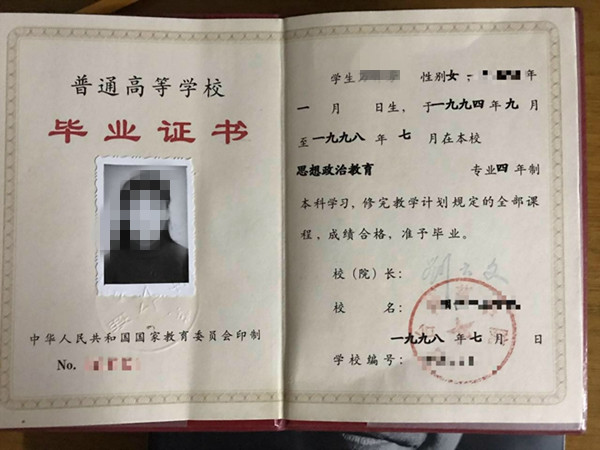 普通高等学校
毕业证书
中华人民共和国国家教育委员会印制
No.
学生 性别女, 年
一 月 日生, 于一九九四年九月
至一九九八年七月在本校
思想政治教育 专业四年制
本科学习, 修完教学计划规定的全部课
程, 成绩合格, 准予毕业。
校（院）长:
校 名:
一九九八年七月 日
学校编号: